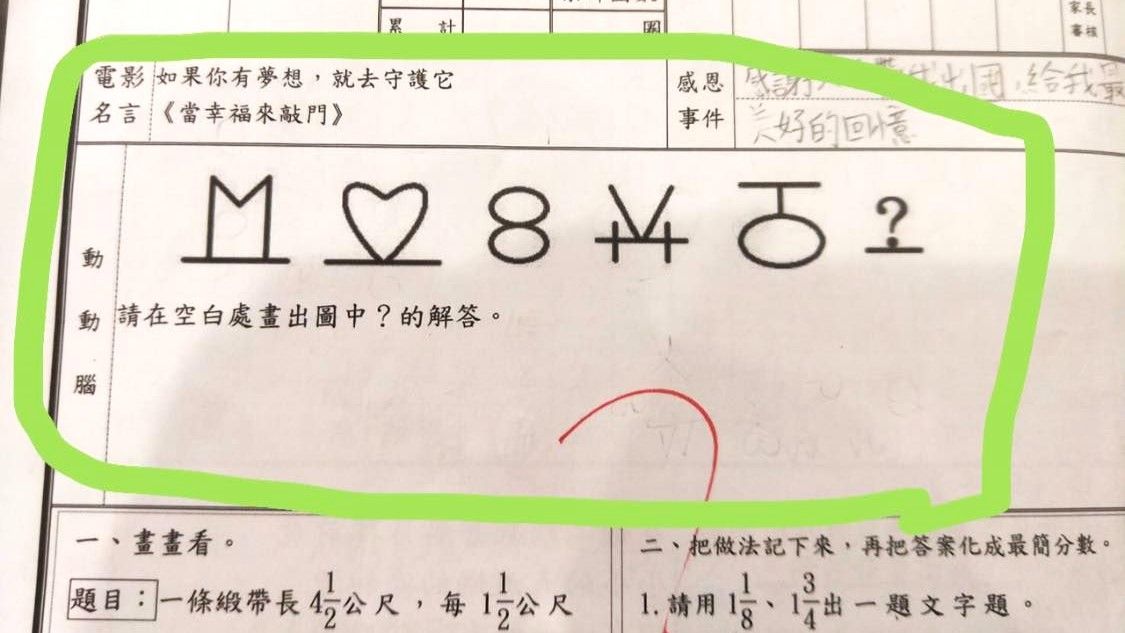 累 計
圈
家長
審核
電影 如果你有夢想，就去守護它
名言 《當幸福來敲門》
感恩
事件
感謝 帶我出國，給我最
美好的回憶
8 ?
動
動
腦
請在空白處畫出圖中？的解答。
一、畫畫看。
題目： 一條緞帶長 4 1/2 公尺，每 1 1/2 公尺
二、把做法記下來，再把答案化成最簡分數。
1. 請用 1 1/8、1 3/4 出一題文字題。